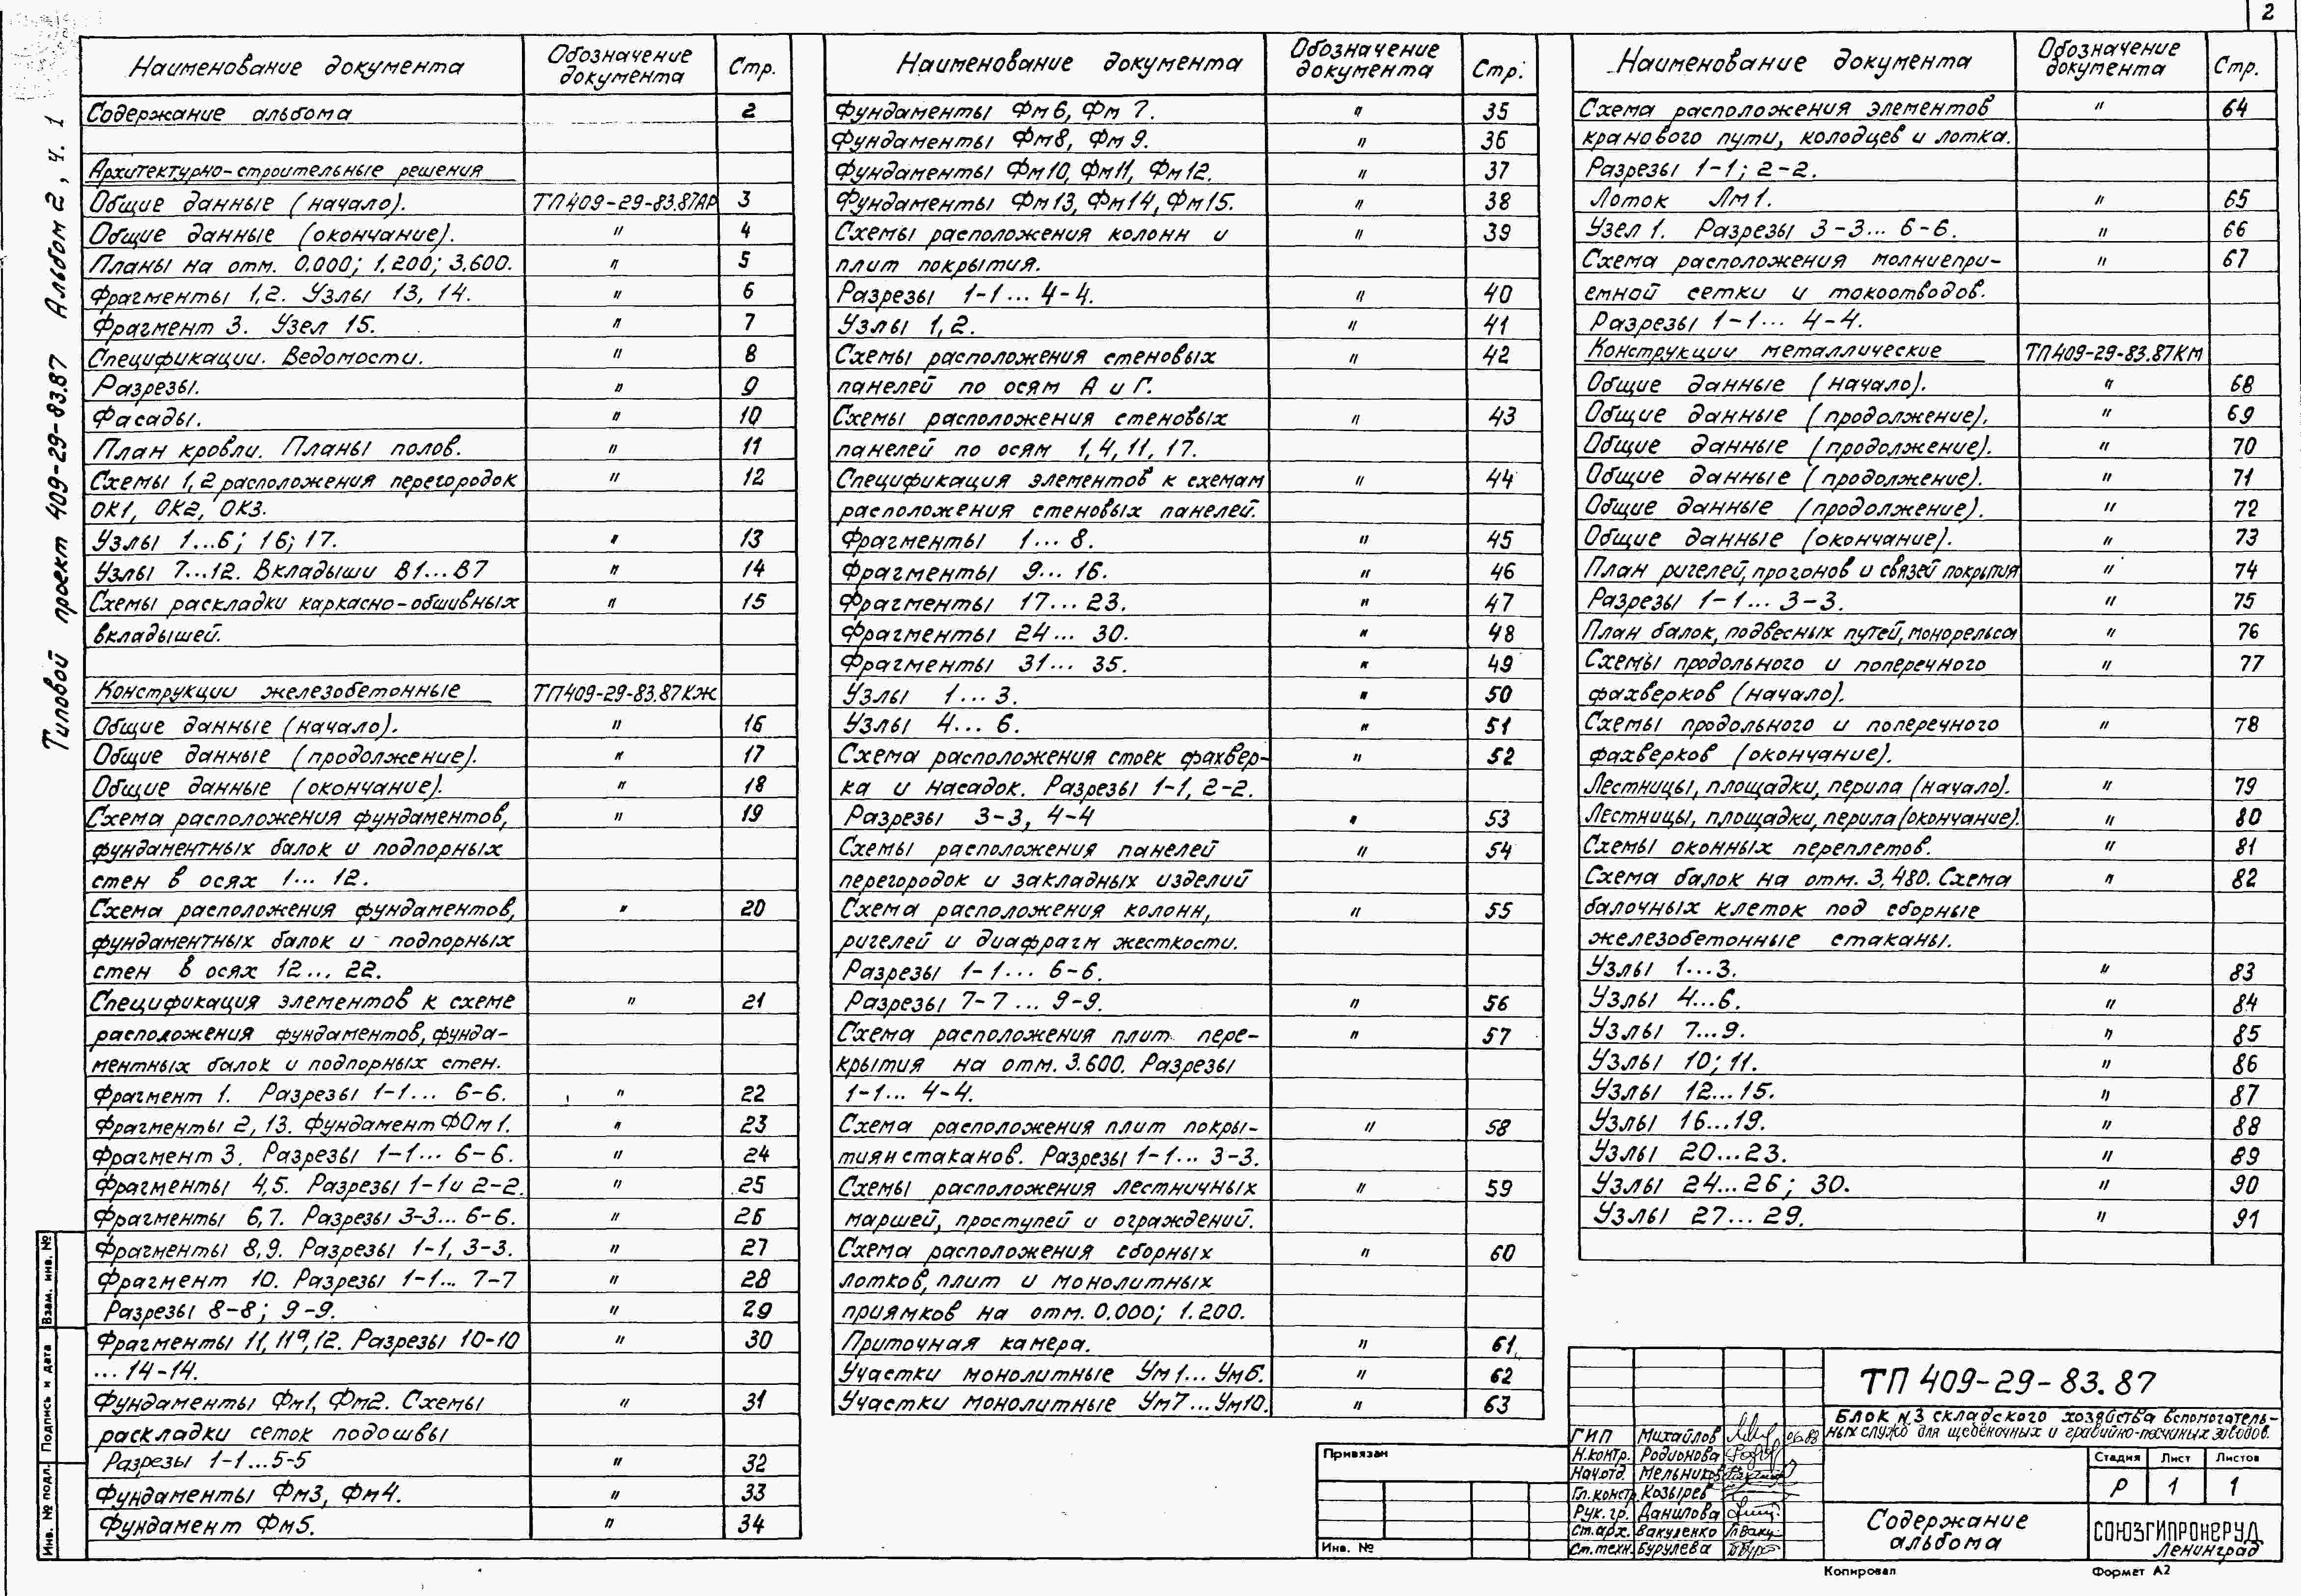 2
Типовой проект 409-29-83.87 Альбом 2, ч. 1
Наименование документа Обозначение документа Стр.
Содержание альбома 2
Архитектурно-строительные решения
Общие данные (начало). ТП409-29-83.87АР 3
Общие данные (окончание). " 4
Планы на отм. 0.000; 1.200; 3.600. " 5
Фрагменты 1,2. Узлы 13, 14. " 6
Фрагмент 3. Узел 15. " 7
Спецификации. Ведомости. " 8
Разрезы. " 9
Фасады. " 10
План кровли. Планы полов. " 11
Схемы 1,2 расположения перегородок " 12
ОК1, ОК2, ОК3.
Узлы 1...6; 16; 17. " 13
Узлы 7...12. Вкладыши В1...В7 " 14
Схемы раскладки каркасно-обшивных " 15
вкладышей.
Конструкции железобетонные ТП409-29-83.87КЖ
Общие данные (начало). " 16
Общие данные (продолжение). " 17
Общие данные (окончание). " 18
Схема расположения фундаментов, " 19
фундаментных балок и подпорных
стен в осях 1... 12.
Схема расположения фундаментов, " 20
фундаментных балок и подпорных
стен в осях 12... 22.
Спецификация элементов к схеме " 21
расположения фундаментов, фунда-
ментных балок и подпорных стен.
Фрагмент 1. Разрезы 1-1... 6-6. " 22
Фрагменты 2, 13. Фундамент ФОм1. " 23
Фрагмент 3. Разрезы 1-1... 6-6. " 24
Фрагменты 4,5. Разрезы 1-1 и 2-2. " 25
Фрагменты 6,7. Разрезы 3-3... 6-6. " 26
Фрагменты 8,9. Разрезы 1-1, 3-3. " 27
Фрагмент 10. Разрезы 1-1... 7-7 " 28
Разрезы 8-8; 9-9. " 29
Фрагменты 11, 11а, 12. Разрезы 10-10 " 30
...14-14.
Фундаменты Фм1, Фм2. Схемы " 31
раскладки сеток подошвы
Разрезы 1-1...5-5 " 32
Фундаменты Фм3, Фм4. " 33
Фундамент Фм5. " 34
Наименование документа Обозначение документа Стр.
Фундаменты Фм6, Фм 7. " 35
Фундаменты Фм8, Фм 9. " 36
Фундаменты Фм10, Фм11, Фм12. " 37
Фундаменты Фм13, Фм14, Фм15. " 38
Схемы расположения колонн и " 39
плит покрытия.
Разрезы 1-1... 4-4. " 40
Узлы 1,2. " 41
Схемы расположения стеновых " 42
панелей по осям А и Г.
Схемы расположения стеновых " 43
панелей по осям 1, 4, 11, 17.
Спецификация элементов к схемам " 44
расположения стеновых панелей.
Фрагменты 1... 8. " 45
Фрагменты 9... 16. " 46
Фрагменты 17... 23. " 47
Фрагменты 24... 30. " 48
Фрагменты 31... 35. " 49
Узлы 1... 3. " 50
Узлы 4... 6. " 51
Схема расположения стоек фахвер- " 52
ка и насадок. Разрезы 1-1, 2-2.
Разрезы 3-3, 4-4 " 53
Схемы расположения панелей " 54
перегородок и закладных изделий
Схема расположения колонн, " 55
ригелей и диафрагм жесткости.
Разрезы 1-1... 6-6.
Разрезы 7-7... 9-9. " 56
Схема расположения плит пере- " 57
крытия на отм. 3.600. Разрезы
1-1... 4-4.
Схема расположения плит покры- " 58
тия и стаканов. Разрезы 1-1... 3-3.
Схемы расположения лестничных " 59
маршей, проступей и ограждений.
Схема расположения сборных " 60
лотков, плит и монолитных
приямков на отм. 0.000; 1.200.
Приточная камера. " 61
Участки монолитные Ум1... Ум6. " 62
Участки монолитные Ум7...Ум10. " 63
Наименование документа Обозначение документа Стр.
Схема расположения элементов " 64
кранового пути, колодцев и лотка.
Разрезы 1-1; 2-2.
Лоток Лм1. " 65
Узел 1. Разрезы 3-3... 6-6. " 66
Схема расположения молниепри- " 67
емной сетки и токоотводов.
Разрезы 1-1... 4-4.
Конструкции металлические ТП409-29-83.87КМ
Общие данные (начало). " 68
Общие данные (продолжение). " 69
Общие данные (продолжение). " 70
Общие данные (продолжение). " 71
Общие данные (продолжение). " 72
Общие данные (окончание). " 73
План ригелей, прогонов и связей покрытия " 74
Разрезы 1-1... 3-3. " 75
План балок, подвесных путей, монорельса " 76
Схемы продольного и поперечного " 77
фахверков (начало).
Схемы продольного и поперечного " 78
фахверков (окончание).
Лестницы, площадки, перила (начало). " 79
Лестницы, площадки, перила (окончание). " 80
Схемы оконных переплетов. " 81
Схема балок на отм. 3,480. Схема " 82
балочных клеток под сборные
железобетонные стаканы.
Узлы 1...3. " 83
Узлы 4...6. " 84
Узлы 7...9. " 85
Узлы 10; 11. " 86
Узлы 12...15. " 87
Узлы 16...19. " 88
Узлы 20...23. " 89
Узлы 24...26; 30. " 90
Узлы 27...29. " 91
Взам. инв. №
Подпись и дата
Инв. № подл.
Привязан
Инв. №
ГИП Михайлов 06.88
Н.контр. Родионова
Нач.отд. Мельников
Гл.констр. Козырев
Рук. гр. Данилова
Ст.арх. Вакуленко
Ст.техн. Бурулева
ТП 409-29-83.87
Блок №3 складского хозяйства вспомогатель-
ных служб для щебеночных и гравийно-песчаных заводов.
Стадия Лист Листов
Р 1 1
Содержание альбома
СОЮЗГИПРОНЕРУД
Ленинград
Копировал Формат А2